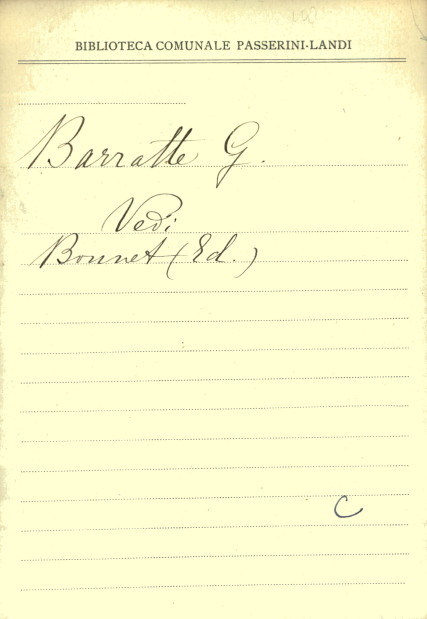 BIBLIOTECA COMUNALE PASSERINI-LANDI
Barratte G.
Vedi
Bonnet (Ed.)
C